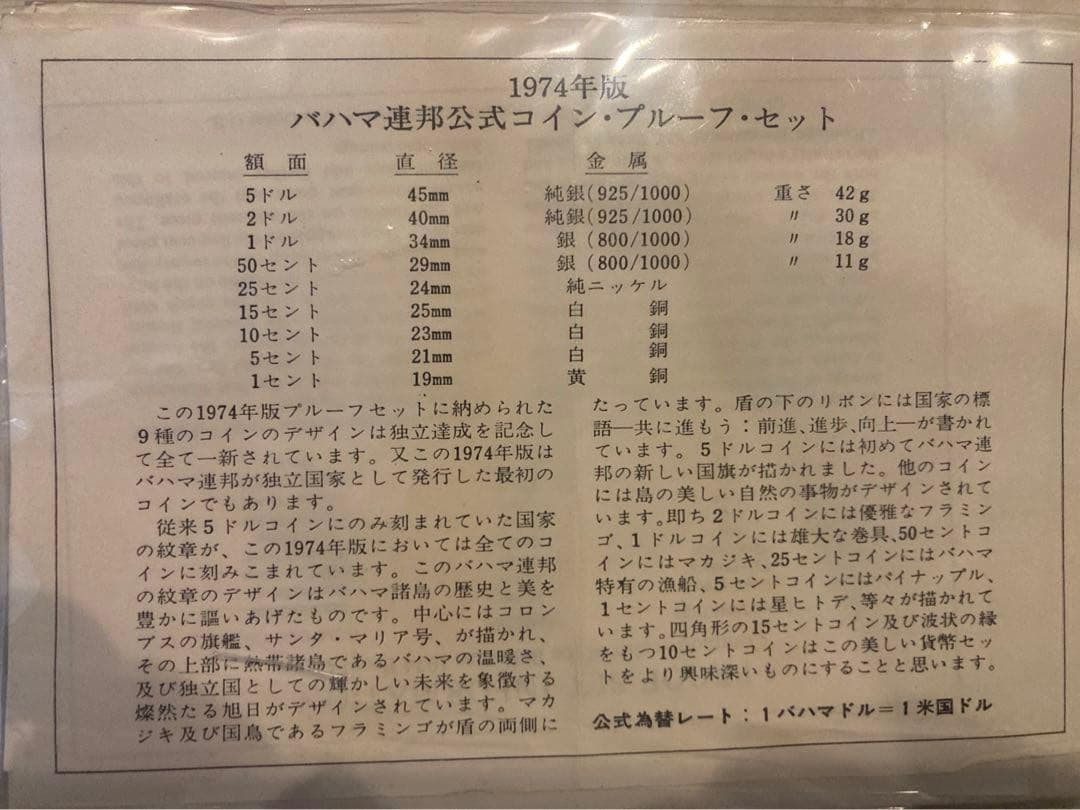 1974年版
バハマ連邦公式コイン・プルーフ・セット
額面 直径 金属
5ドル 45mm 純銀(925/1000) 重さ 42g
2ドル 40mm 純銀(925/1000) 〃 30g
1ドル 34mm 銀(800/1000) 〃 18g
50セント 29mm 銀(800/1000) 〃 11g
25セント 24mm 純ニッケル
15セント 25mm 白銅
10セント 23mm 白銅
5セント 21mm 白銅
1セント 19mm 黄銅
この1974年版プルーフセットに納められた
9種のコインのデザインは独立達成を記念し
て全て一新されています。又この1974年版は
バハマ連邦が独立国家として発行した最初の
コインでもあります。
従来5ドルコインにのみ刻まれていた国家
の紋章が、この1974年版においては全てのコ
インに刻みこまれています。このバハマ連邦
の紋章のデザインはバハマ諸島の歴史と美を
豊かに謳いあげたものです。中心にはコロン
ブスの旗艦、サンタ・マリア号、が描かれ、
その上部に熱帯諸島であるバハマの温暖さ、
及び独立国としての輝かしい未来を象徴する
燦然たる旭日がデザインされています。マカ
ジキ及び国鳥であるフラミンゴが盾の両側に
たっています。盾の下のリボンには国家の標
語―共に進もう:前進、進歩、向上―が書かれ
ています。5ドルコインには初めてバハマ連
邦の新しい国旗が描かれました。他のコイン
には島の美しい自然の事物がデザインされて
います。即ち2ドルコインには優雅なフラミン
ゴ、1ドルコインには雄大な巻貝、50セントコ
インにはマカジキ、25セントコインにはバハマ
特有の漁船、5セントコインにはパイナップル、
1セントコインには星ヒトデ、等々が描かれて
います。四角形の15セントコイン及び波状の縁
をもつ10セントコインはこの美しい貨幣セッ
トをより興味深いものにすることと思います。
公式為替レート:1バハマドル=1米国ドル